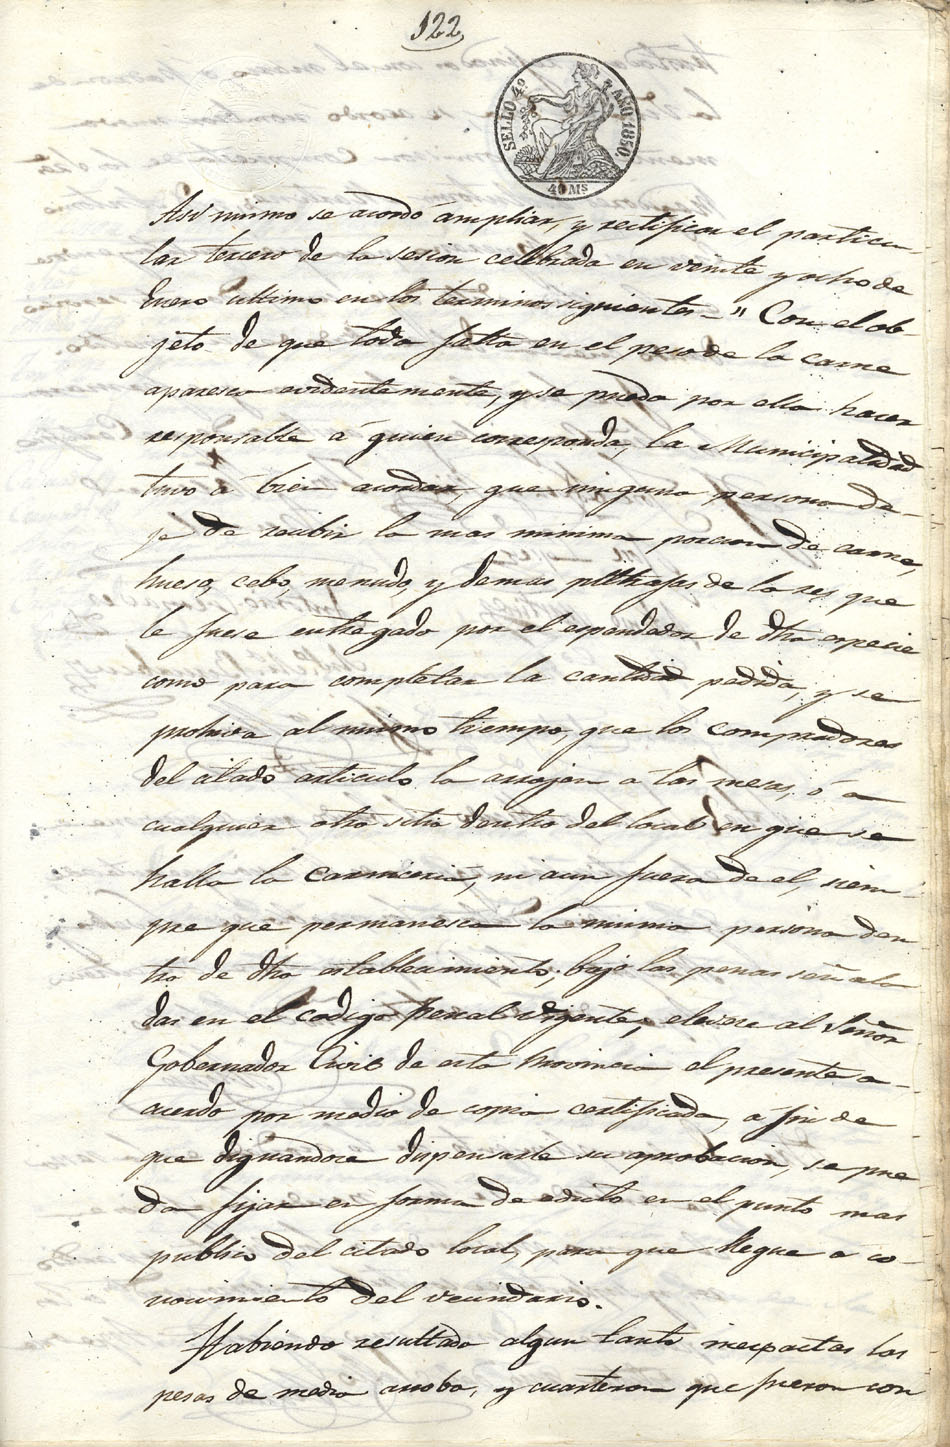 122
SELLO 4º AÑO 1850.
40 Ms
Asi mismo se acordó ampliar, y rectificar el particu
lar tercero de la sesion celebrada en veinte y ocho de
Enero ultimo en los terminos siguientes - " Con el ob-
jeto de que toda falta en el peso de la carne
aparesca evidentemente, y se pueda por ella hacer
responsable á quien corresponda, la Municipalidad
tuvo á bien acordar, que ninguna persona de-
je de recibir la mas minima porcion de carne,
hueso, cebo, menudo, y demas piltrafas de la res que
le fuese entregado por el espendedor de dha especie
como para completar la cantidad pedida, y se
prohiva al mismo tiempo, que los compradores
del citado articulo la arrojen a las mesas, ó a
cualquier otro sitio dentro del local en que se
halla la carniceria, ni aun fuera de el, siem-
pre que permanesca la misma persona den
tro de dho establecimiento; bajo las penas señala
das en el codigo Penal vigente, elevese al Señor
Gobernador Civil de esta Provincia el presente a-
cuerdo por medio de copia certificada, a fin de
que dignandose dispensarle su aprobacion, se pue
da fijar en forma de edicto en el punto mas
publico del citado local, para que llegue a co-
nocimiento del vecindario.
Habiendo resultado algun tanto inexactas las
pesas de media arroba, y cuarteron que fueron con